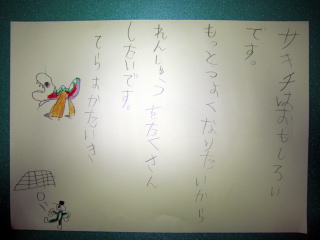 サキチはおもしろい
です。
もっとつよくなりたいから
れんしゅうをたくさん
したいです。
てらおかだいき